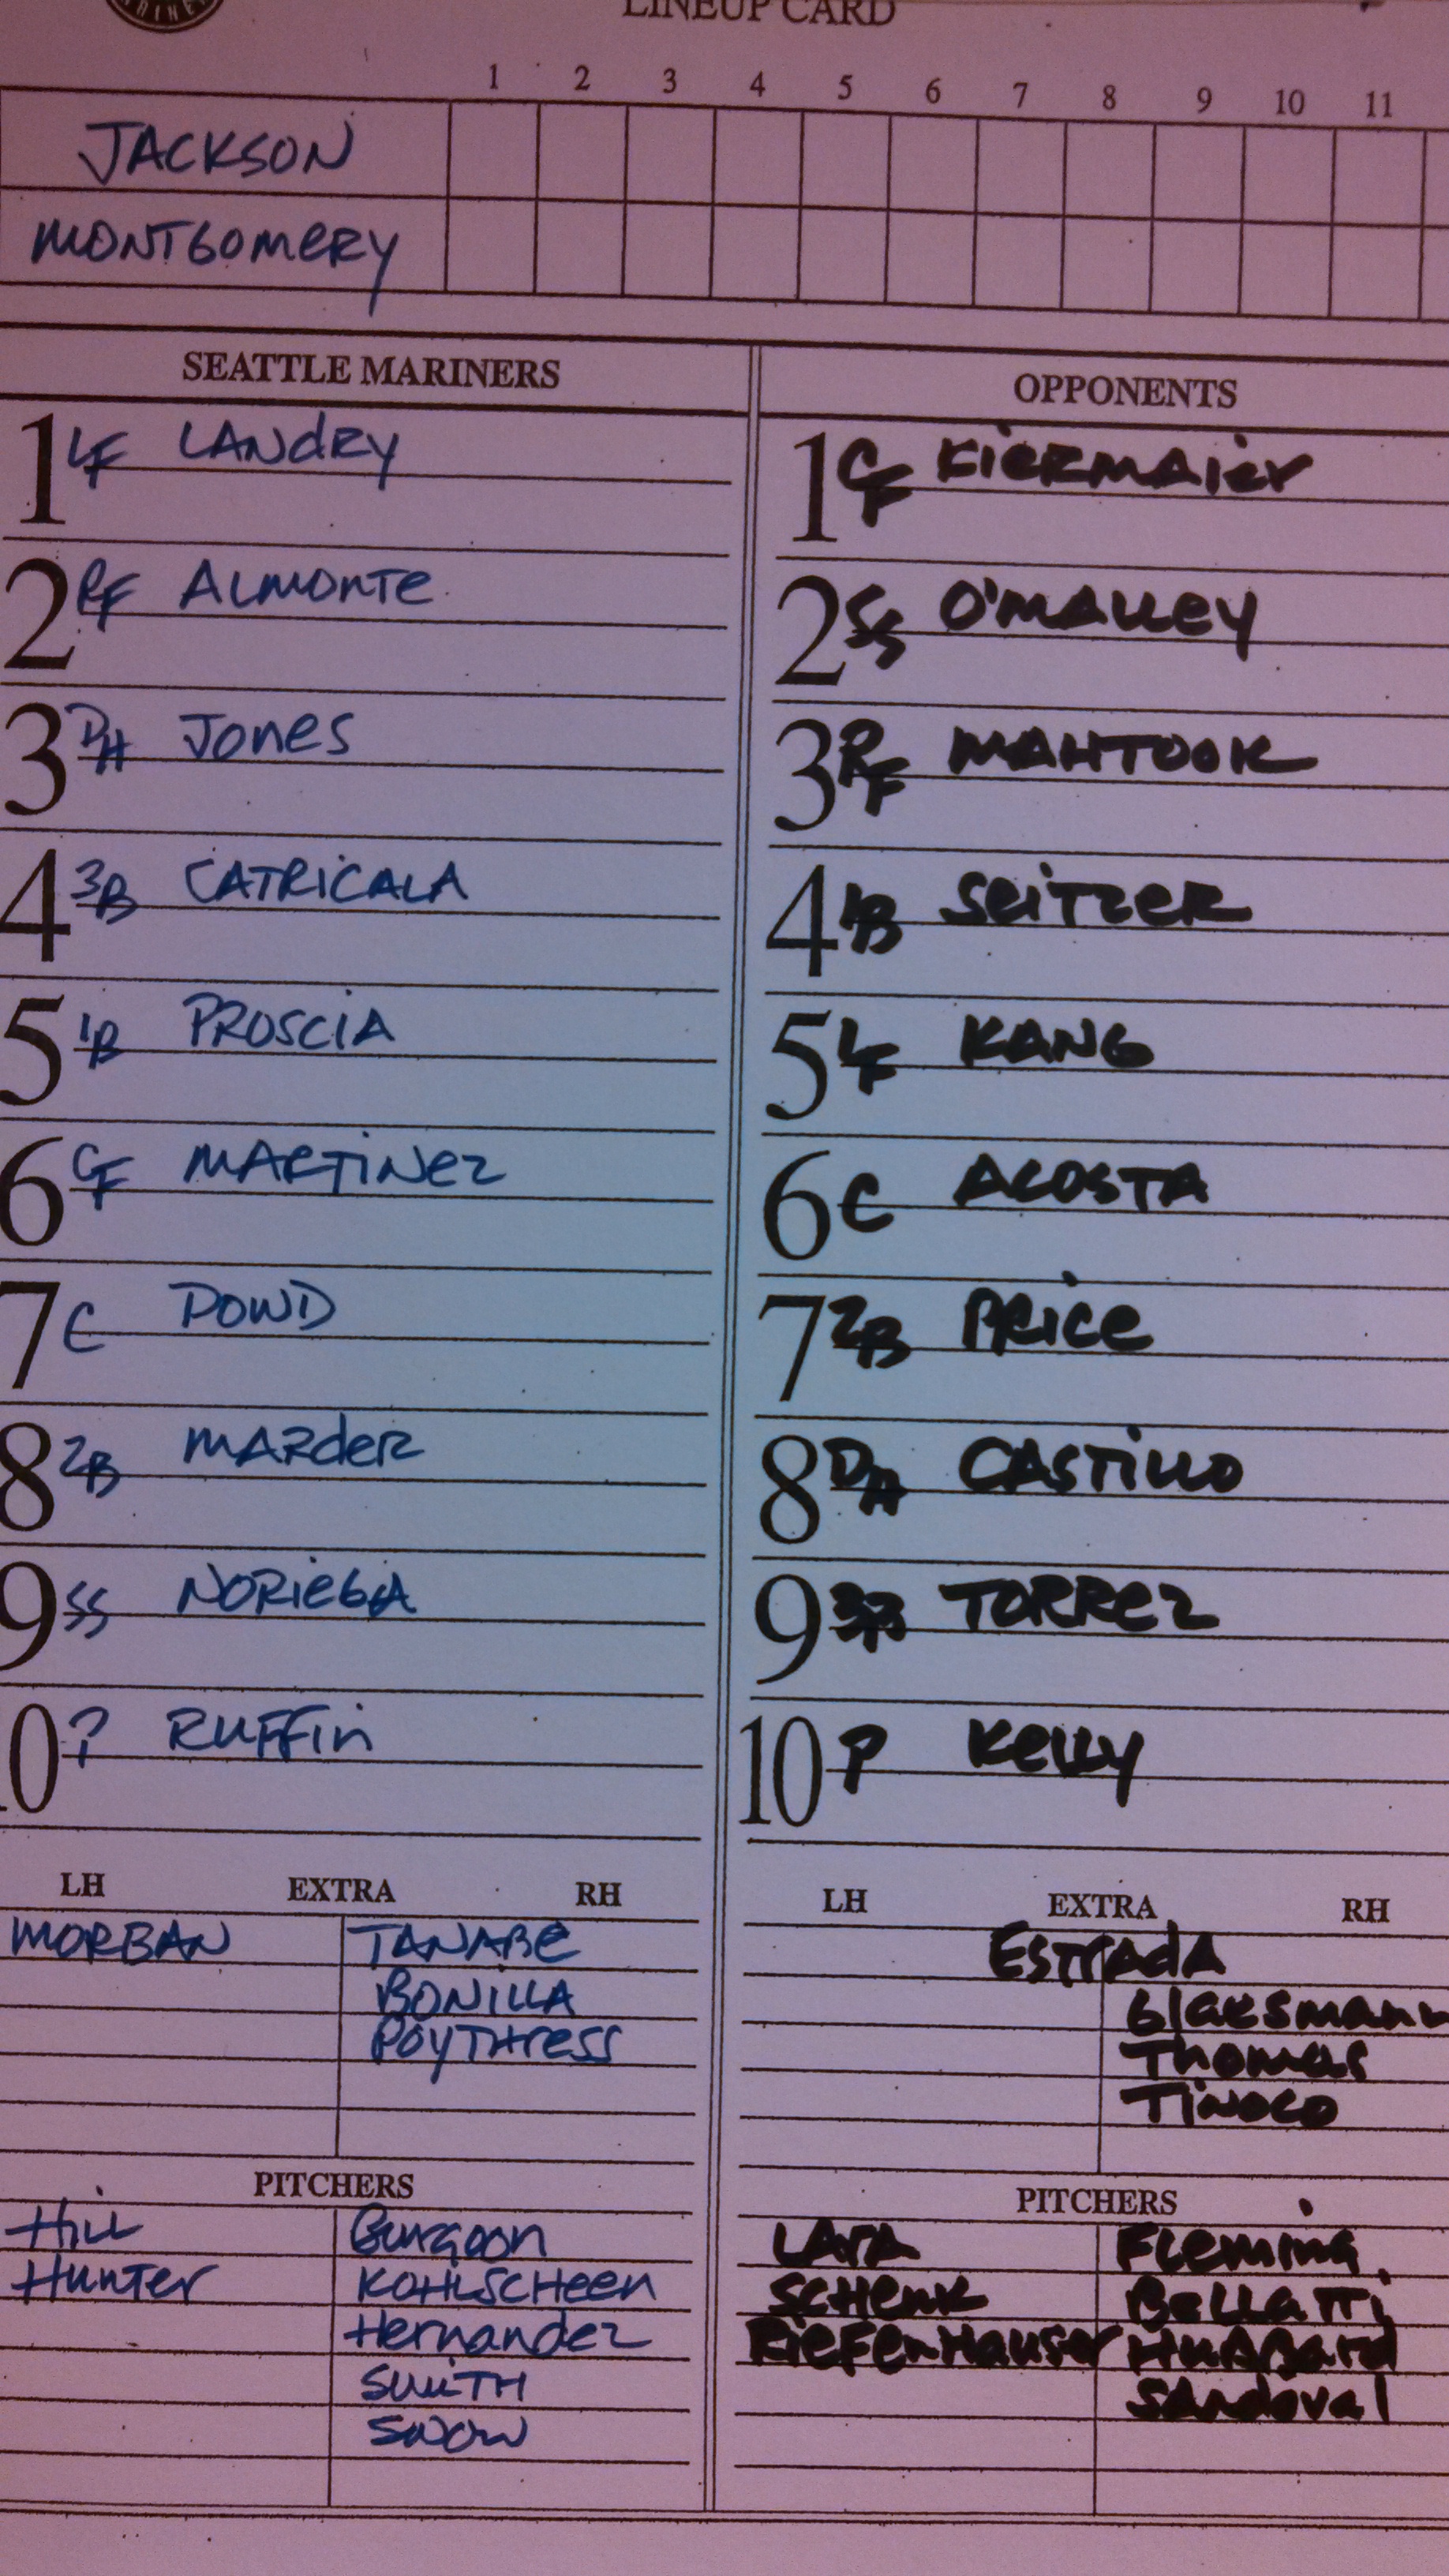 LINEUP CARD
1 2 3 4 5 6 7 8 9 10 11
JACKSON
MONTGOMERY
SEATTLE MARINERS
1 LF LANDRY
2 RF ALMONTE
3 DH JONES
4 3B CATRICALA
5 1B PROSCIA
6 CF MARTINEZ
7 C DOWD
8 2B MARDER
9 SS NORIEGA
10 P RUFFIN
LH EXTRA RH
MORBAN TANABE
BONILLA
POYTHRESS
PITCHERS
Hill Burgoon
Hunter KOHLSCHEEN
Hernandez
SMITH
SNOW
OPPONENTS
1 CF KIERMAIER
2 SS O'MALLEY
3 RF MAHTOOK
4 1B SEITZER
5 LF KANG
6 C ACOSTA
7 2B PRICE
8 DH CASTILLO
9 3B TORREZ
10 P KELLY
LH EXTRA RH
ESTRADA
Glaesmann
Thomas
TINOCO
PITCHERS
LARA Fleming
SCHENK BELLATTI
RIEFENHAUSER HUBBARD
Sandoval